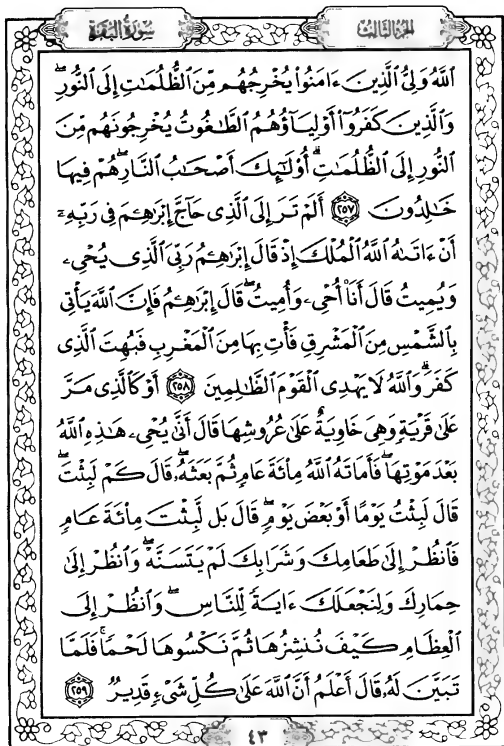 سُورَةُ البَقَرَةِ
الجُزْءُ الثَّالِثُ
ٱللَّهُ وَلِيُّ ٱلَّذِينَ ءَامَنُواْ يُخْرِجُهُم مِّنَ ٱلظُّلُمَٰتِ إِلَى ٱلنُّورِۖ
وَٱلَّذِينَ كَفَرُوٓاْ أَوْلِيَآؤُهُمُ ٱلطَّٰغُوتُ يُخْرِجُونَهُم مِّنَ
ٱلنُّورِ إِلَى ٱلظُّلُمَٰتِۗ أُوْلَٰٓئِكَ أَصْحَٰبُ ٱلنَّارِۖ هُمْ فِيهَا
خَٰلِدُونَ ٢٥٧ أَلَمْ تَرَ إِلَى ٱلَّذِى حَآجَّ إِبْرَٰهِـۧمَ فِى رَبِّهِۦٓ
أَنْ ءَاتَىٰهُ ٱللَّهُ ٱلْمُلْكَ إِذْ قَالَ إِبْرَٰهِـۧمُ رَبِّىَ ٱلَّذِى يُحْىِۦ
وَيُمِيتُ قَالَ أَنَا۠ أُحْىِۦ وَأُمِيتُۖ قَالَ إِبْرَٰهِـۧمُ فَإِنَّ ٱللَّهَ يَأْتِى
بِٱلشَّمْسِ مِنَ ٱلْمَشْرِقِ فَأْتِ بِهَا مِنَ ٱلْمَغْرِبِ فَبُهِتَ ٱلَّذِى
كَفَرَۗ وَٱللَّهُ لَا يَهْدِى ٱلْقَوْمَ ٱلظَّٰلِمِينَ ٢٥٨ أَوْ كَٱلَّذِى مَرَّ
عَلَىٰ قَرْيَةٍ وَهِىَ خَاوِيَةٌ عَلَىٰ عُرُوشِهَا قَالَ أَنَّىٰ يُحْىِۦ هَٰذِهِ ٱللَّهُ
بَعْدَ مَوْتِهَاۖ فَأَمَاتَهُ ٱللَّهُ مِا۟ئَةَ عَامٍ ثُمَّ بَعَثَهُۥۖ قَالَ كَمْ لَبِثْتَۖ
قَالَ لَبِثْتُ يَوْمًا أَوْ بَعْضَ يَوْمٍۖ قَالَ بَل لَّبِثْتَ مِا۟ئَةَ عَامٍ
فَٱنظُرْ إِلَىٰ طَعَامِكَ وَشَرَابِكَ لَمْ يَتَسَنَّهْۖ وَٱنظُرْ إِلَىٰ
حِمَارِكَ وَلِنَجْعَلَكَ ءَايَةً لِّلنَّاسِۖ وَٱنظُرْ إِلَى
ٱلْعِظَامِ كَيْفَ نُنشِزُهَا ثُمَّ نَكْسُوهَا لَحْمًاۚ فَلَمَّا
تَبَيَّنَ لَهُۥ قَالَ أَعْلَمُ أَنَّ ٱللَّهَ عَلَىٰ كُلِّ شَىْءٍ قَدِيرٌ ٢٥٩
٤٣